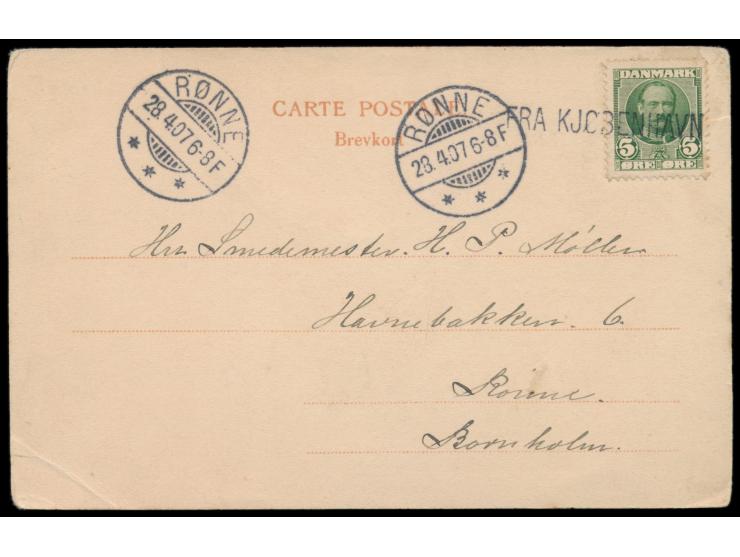 RØNNE
28.4.07 6-8F
CARTE POSTALE
Brevkort
RØNNE
28.4.07 6-8F
FRA KJØBENHAVN
DANMARK
5 5
ØRE ØRE
Hrr. Smedemester. H. P. Møller
Havnebakken. 6.
Rönne.
Bornholm.